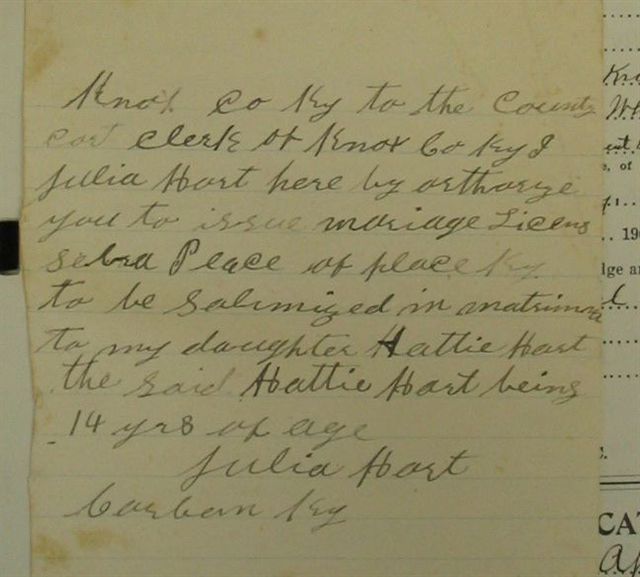 Knox Co Ky to the County
cort clerk of Knox Co Ky I
Julia Hart here by orthoryze
you to issue mariage Licens
sebra Peace of place Ky
to be Solimized in matrimon
to my daughter Hattie Hart
the said Hattie Hart being
14 yrs of age
Julia Hart
Corban Ky
Kn
, of
190
dge an
CAT